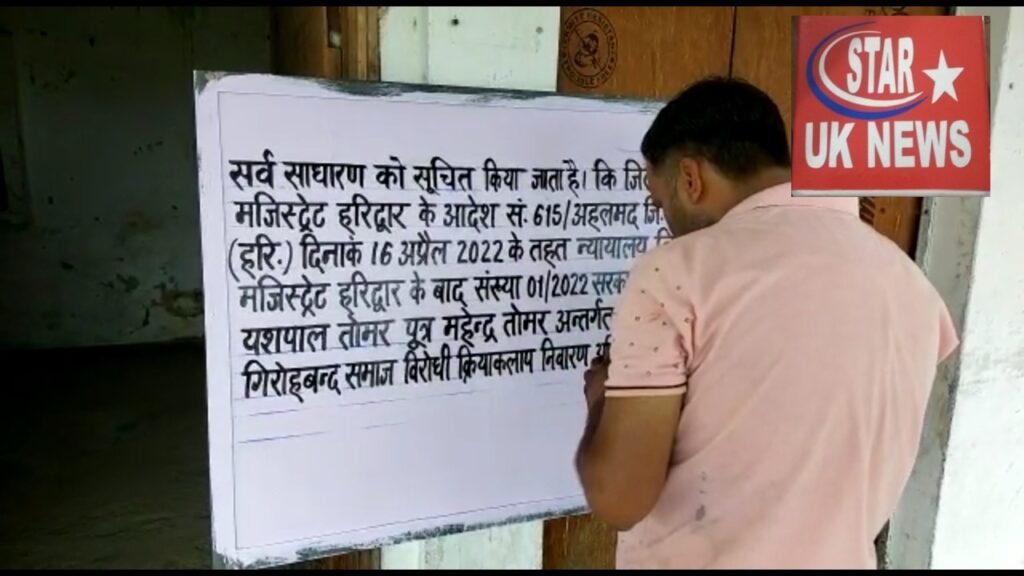 सर्व साधारण को सूचित किया जाता है। कि
मजिस्ट्रेट हरिद्वार के आदेश सं. 615/अहलमद जि.
(हरि.) दिनाकं 16 अप्रैल 2022 के तहत न्यायालय
मजिस्ट्रेट हरिद्वार के बाद संख्या 01/2022
यशपाल तोमर पुत्र महेन्द्र तोमर अन्तर्गत
गिरोहबन्द समाज विरोधी क्रियाकलाप निवारण
STAR
UK NEWS